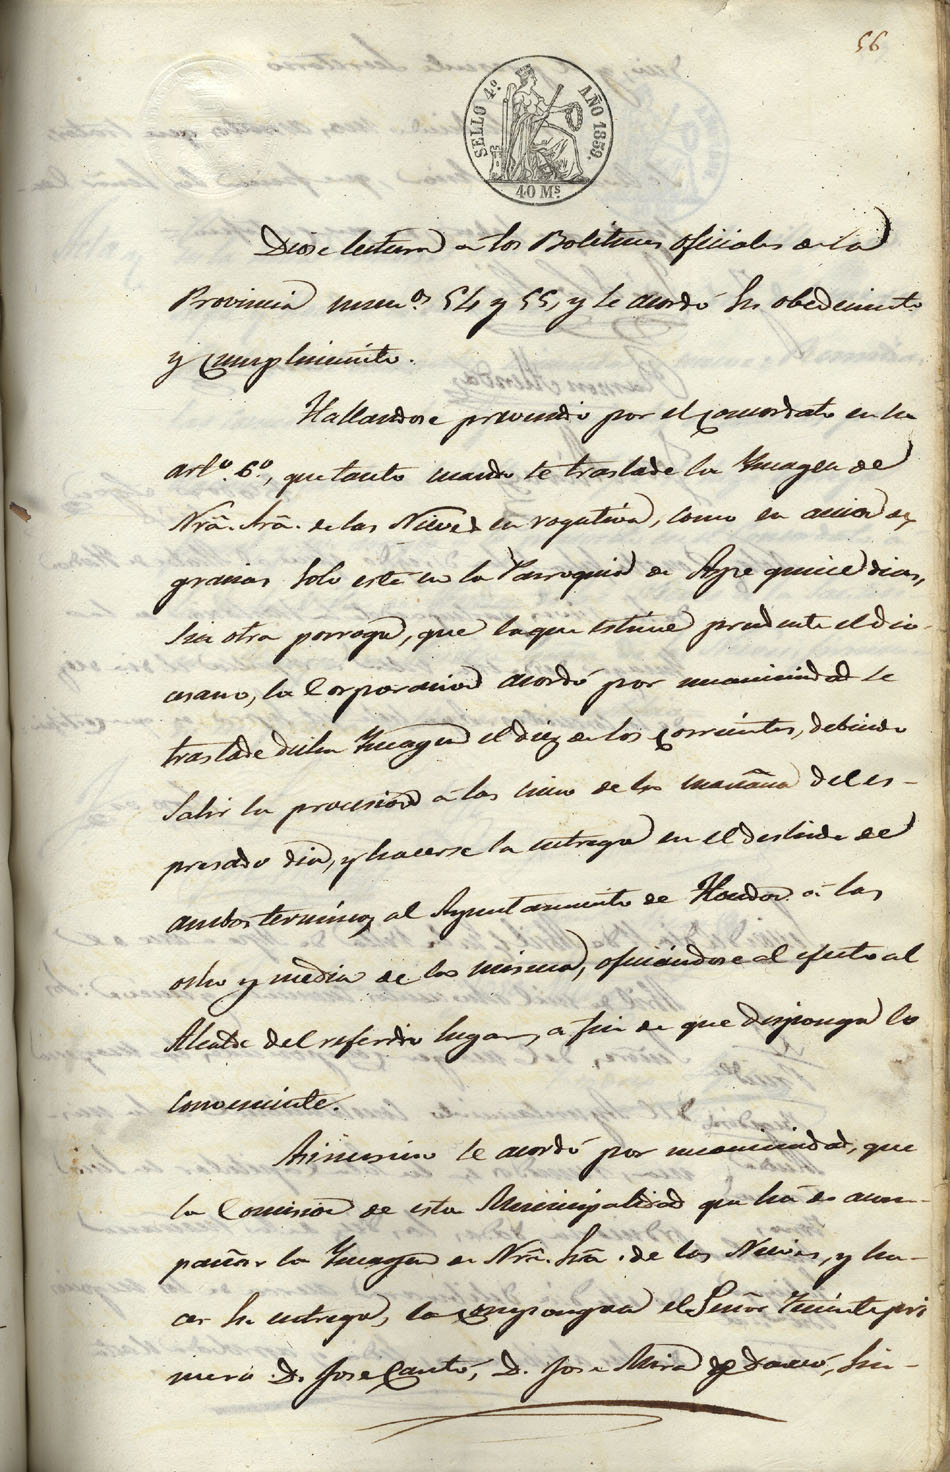 56
SELLO 4º. AÑO 1859.
40 Ms
Diose lectura a los Boletines oficiales de la
Provincia numos. 54 y 55, y se acordó su obedecimto
y cumplimiento.
Hallandose prevenido por el concordato en su
artº. 6º, que tanto cuando se traslade la Ymagen de
Nrã. Srã. de las Nieves en rogativa, como en accion de
gracias solo esté en la Parroquia de Aspe quince dias,
sin otra prorroga, que la que estime prudente el dio-
cesano, la Corporacion acordó por unanimidad se
traslade dicha Ymagen el diez de los corrientes, debiendo
salir la procesion á las cinco de la mañana del es-
presado dia, y hacerse la entrega en el deslinde de
ambos terminos al Ayuntamiento de Hondon á las
ocho y media de la misma, oficiandose al efecto al
Alcalde del referido lugar, a fin de que disponga lo
conveniente.
Asimismo se acordó por unanimidad, que
la Comision de esta Municipalidad que há de acom-
pañar la Ymagen de Nrã. Srã. de las Nieves, y ha-
cer su entrega, la compongan el Señor Teniente pri
mero D. Jose Cantó, D. Jose Mira, Sin-